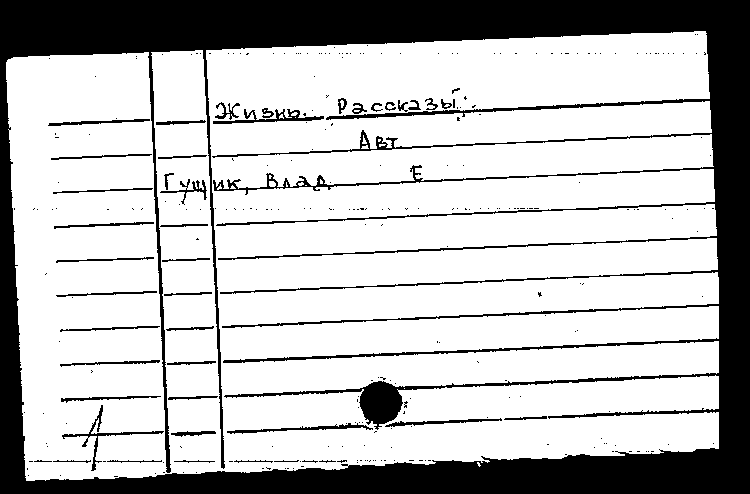 Жизнь. Рассказы.
Авт
Гущик, Влад. Е
1